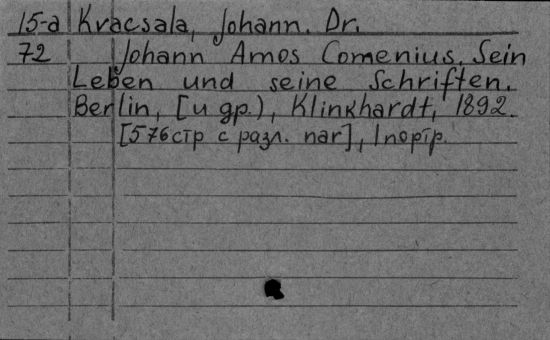 15-a Kvacsala, Johann. Dr.
72 Johann Amos Comenius. Sein
Leben und seine Schriften.
Berlin, [и др.), Klinkhardt, 1892.
[576 стр с разл. паг], 1 портр.